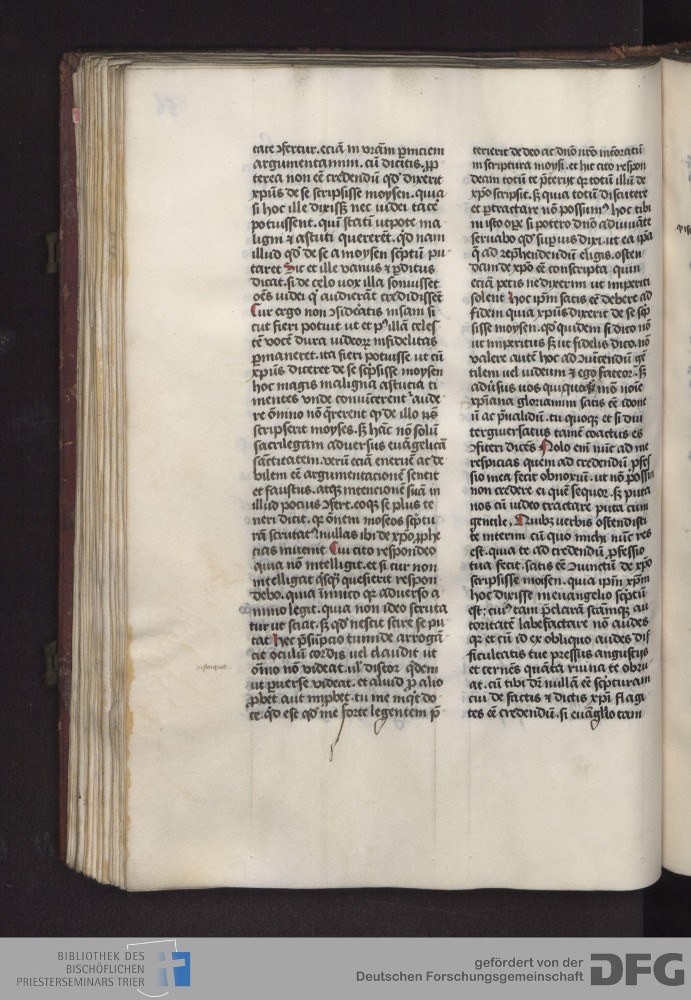 tate ꝯfertur. eciā in vr̄am ꝑniciem
argumentamini. cū dicitis. ꝓp
terea non eē credendū qd' dixerit
xp̄us de se scripsisse moysen. quia
si hoc ille dixissꝫ nec iudei tacē
potuissent. quī statī utpote ma
ligni ⁊ astuti quererēt. qd nam
illud qd' de se a moysen sc̄ptū pu-
taret Sic et ille vanus ⁊ ꝑditus
dicat. si de celo uox illa sonuisset
oēs iudei qͥ audierāt credidissēt
Cur ergo non ꝯsid'eatis insani si
cut fieri potuit ut et pꝰ illā celes
tē vocē dura iudeoꝝ infidelitas
ꝑmaneret. ita fieri potuisse ut cū
xp̄us diceret de se sc̄psisse moysen
hoc magis maligna astucia ti
mentes vnde convincerent᷑ aude
re om̄ino nō q̄rerent qͥd de illo
scripserit moyses. sꝫ hāc nō solū
sacrilegam adversus euāgelicā
sāctitatem. verū eciā eneruē ac de
bilem eē argumentacionē sentit
et faustus. atqꝫ intencionē suā in
illud pocius ꝯfert. eoqꝫ se plus te
neri dicit. qꝛ ōnem moseos sc̄ptu
rā scrutatꝰ nullas ibi de xp̄o ꝓph̄e
cias inuenit Cui cito respondeo
quia nō intelligit. et si cur non
intelligat q̄sqͣꝫ quesierit respon
debo. quia īimico qꝛ adverso a
nimo legit. quia non ideo scruta
tur ut sciat. sꝫ qd' nescit scire se pu
tat Hec p̄sūpcio tumide arrogā-
cie oculū cordis uel claudit ut
ōino nō videat. ul' distor qͥdem
ut ꝑuerse videat. et aliud ꝓ alio
ꝓbet aut inꝓbet. tu me inqͥt do
ce. qd' est qd' me forte legentem p̄
terierit de deo ac dn̄o nr̄o mēoratū
in scriptura moysi. et hic cito respon
deam totū te p̄terijt qꝛ totū illā de
xp̄o scripsit. sꝫ quia totū discutere
et ꝑtractare nō possumꝰ hoc tibi
in isto oꝑe si potero dn̄o adiuuāte
seruabo qd' supius dixi. ut ea ip̄a
q̄ ad rep̄hendendū eligis. osten
dam de xp̄o eē conscripta quin
eciā petis ne dixerim ut imperiti
solent Hoc ip̄m satis eē debere ad
fidem quia xp̄us dixerit de se sc̄p
sisse moysen. qd' quidem si dico nō
ut imperitus sꝫ ut fidelis dico. nō
valere autē hoc ad ꝯuincendū gē
tilem uel iudeum ⁊ ego fateor. sꝫ
adūsus uos qui quoqͦmō noīe
xp̄iana gloriamini satis eē idone
ū ac p̄ualidū. tu quoqꝫ et si diu
tergiuersatus tamē coactus es
ꝯfiteri dicēs Nolo em̄ nūc ad me
respicias quem ad credendū ꝓfes
sio mea fecit obnoxiū. ut nō possim
non credere ei quē sequor. sꝫ puta
nos cū iudeo tractare puta cum
gentile. Quibꝫ uerbis ostendisti
te interim cū quo michi nūc res
est. quia te ad credendū ꝓfessio
tua fecit. satis eē ꝯuinctū de xp̄o
scripsisse moisen. quia ip̄m xp̄m
hoc dixisse in euangelio sc̄ptū
est: cuiꝰ tam p̄clarā sc̄amqꝫ au
toritatē labefactare nō audes
qꝛ et cū id ex obliquo audes dif
ficultatis tue pressus angustijs
et cernēs quāta ruina te obru
at. cū tibi dr̄ nullā eē sc̄pturam
cui de factis ⁊ dictis xp̄i flagi
tes eē credendū. si euāglio tam
BIBLIOTHEK DES
BISCHÖFLICHEN
PRIESTERSEMINARS TRIER
gefördert von der
Deutschen Forschungsgemeinschaft
DFG